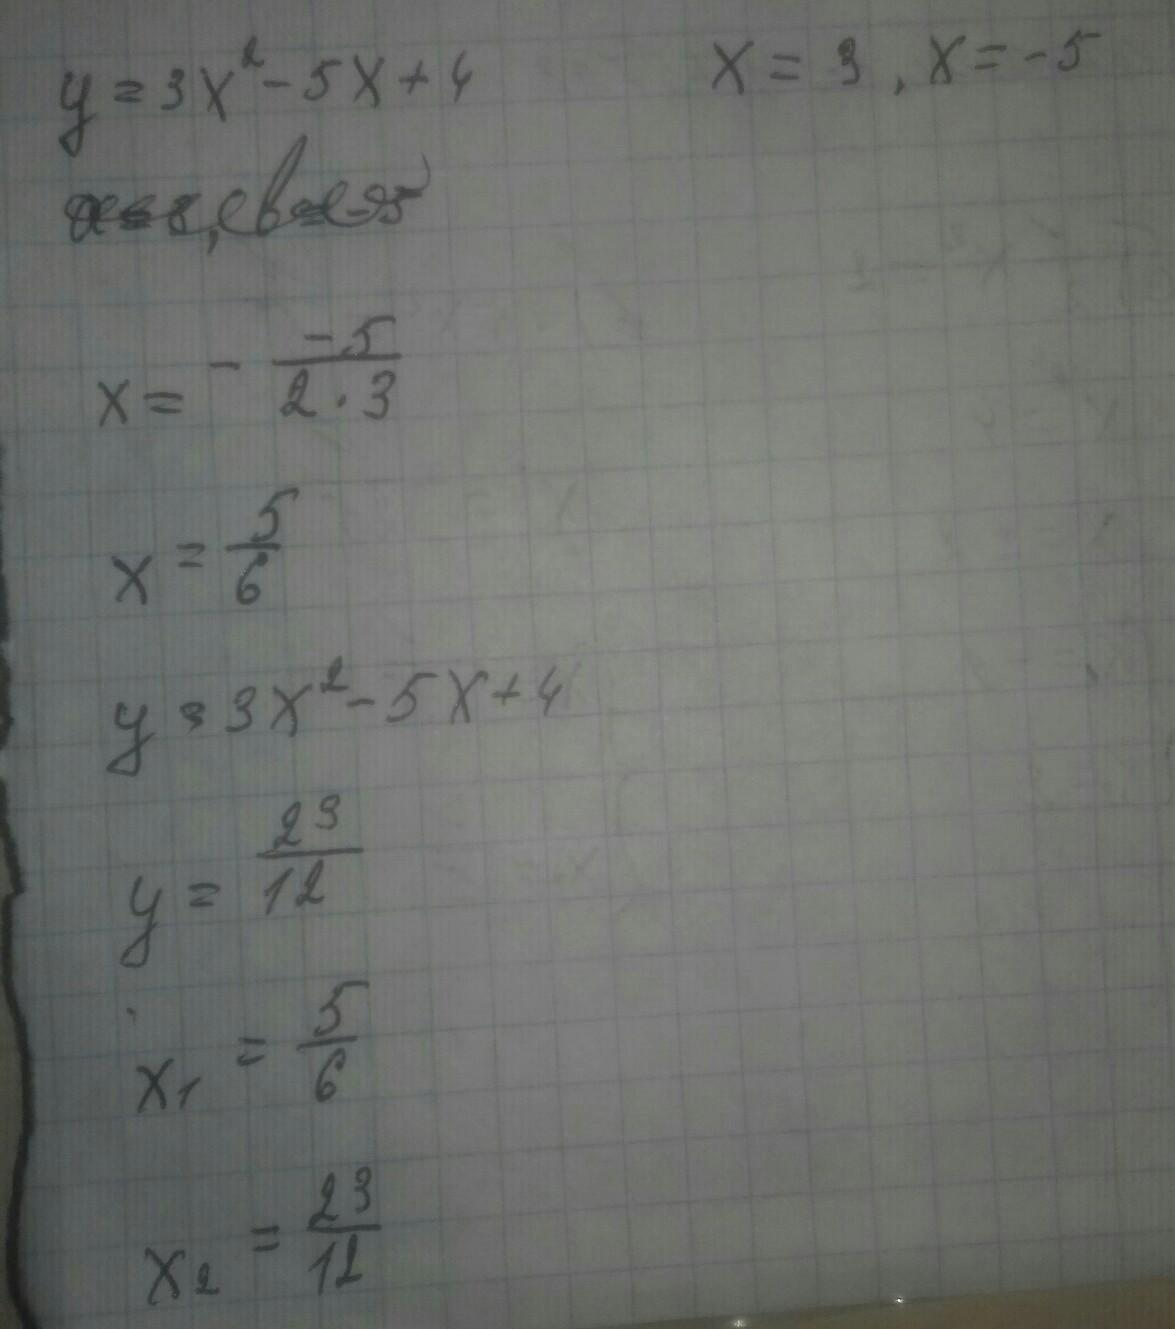 y = 3x² - 5x + 4
x = 3, x = -5
x = - \frac{-5}{2 · 3}
x = \frac{5}{6}
y = 3x² - 5x + 4
y = \frac{23}{12}
x₁ = \frac{5}{6}
x₂ = \frac{23}{12}